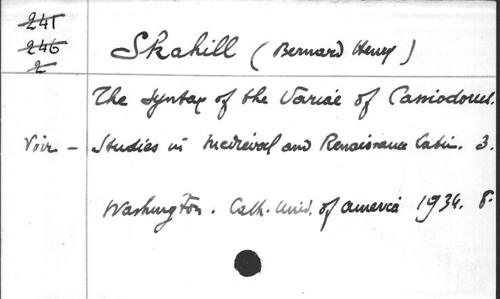 241
246
2
Skahill (Bernard Henry)
The Syntax of the Variae of Cassiodorus.
Voir – Studies in Medieval and Renaissance Latin. 3.
Washington. Cath. Univ. of America 1934. 8°